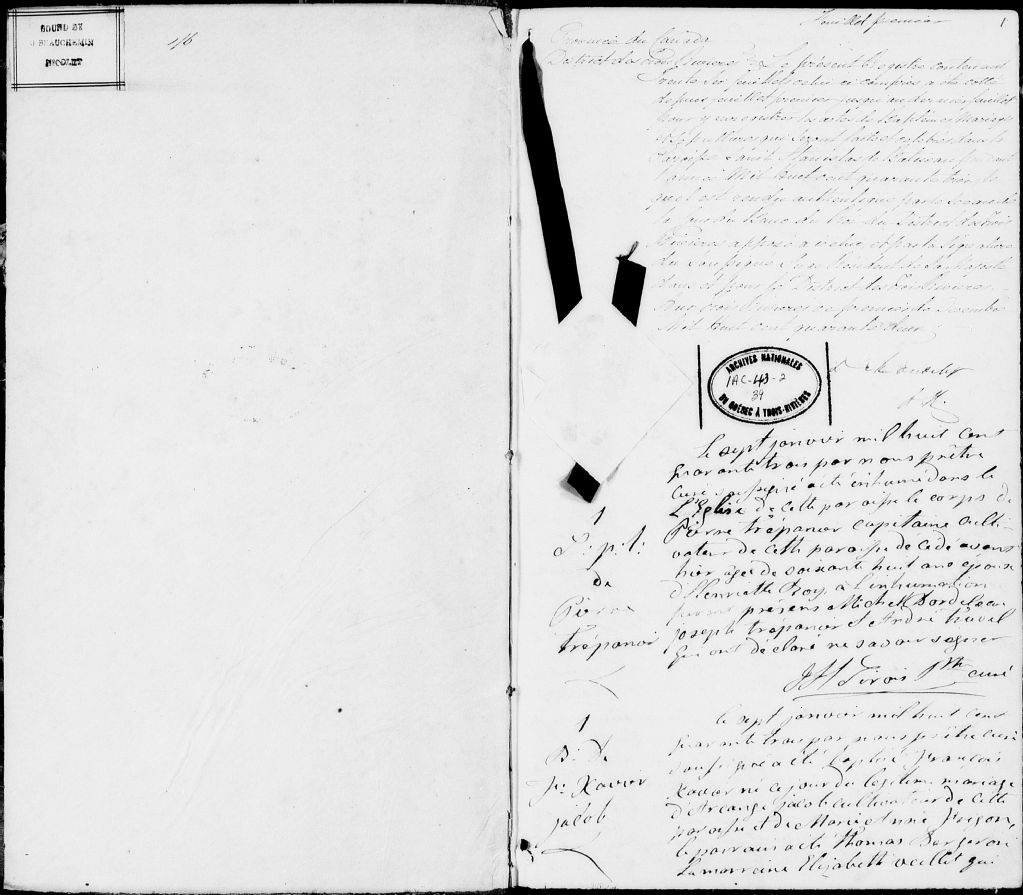 BOUND BY
BEAUCHEMIN
NICOLET
Feuillet premier
1
Province du Canada
District des Trois Rivieres
Le présent Registre contenant
trente six feuillets celui ci compris a été cotté
depuis feuillet premier jusqu'au dernier feuillet
pour y enregistrer les actes de Baptêmes Mariages
et Sépultures qui seront faits et célébrés dans la
Paroisse Saint Stanislas de Batiscan pendant
l'année Mil huit cent quarante trois le
quel est rendu authentique par le Sceau de
la Cour du Banc du Roi du District des Trois
Rivieres apposé
du soussigné
dans et pour le District des Trois Rivieres
Aux Trois Rivieres ce premier de Décembre
Mil huit cent quarante deux
ARCHIVES NATIONALES
1AC-43-2
39
DU QUÉBEC À TROIS-RIVIÈRES
1
S: p. t:
de
Pierre
trépanier
le sept janvier mil huit cent
quarante trois par nous prêtre
curé soussigné a été inhumé dans le
L'Eglise de cette paroisse le corps de
Pierre trépanier capitaine culti
vateur de cette paroisse décédé avant
hier âgé de soixante huit ans epoux
d'Henriette Roy, à l'inhumation
furent présens Michel Bordeleau
joseph trépanier & André
qui ont déclaré ne savoir signer
Ptre curé
1
B: de
Fr: Xavier
jacob
le sept janvier mil huit cent
quarante trois par nous prêtre curé
soussigné a été baptisé François
Xavier né ce jour du legitime mariage
d'Arcange jacob cultivateur de cette
paroisse et de Marie Anne frigon,
le parrain a été thomas Bergeron,
la marraine Elizabeth veillet qui